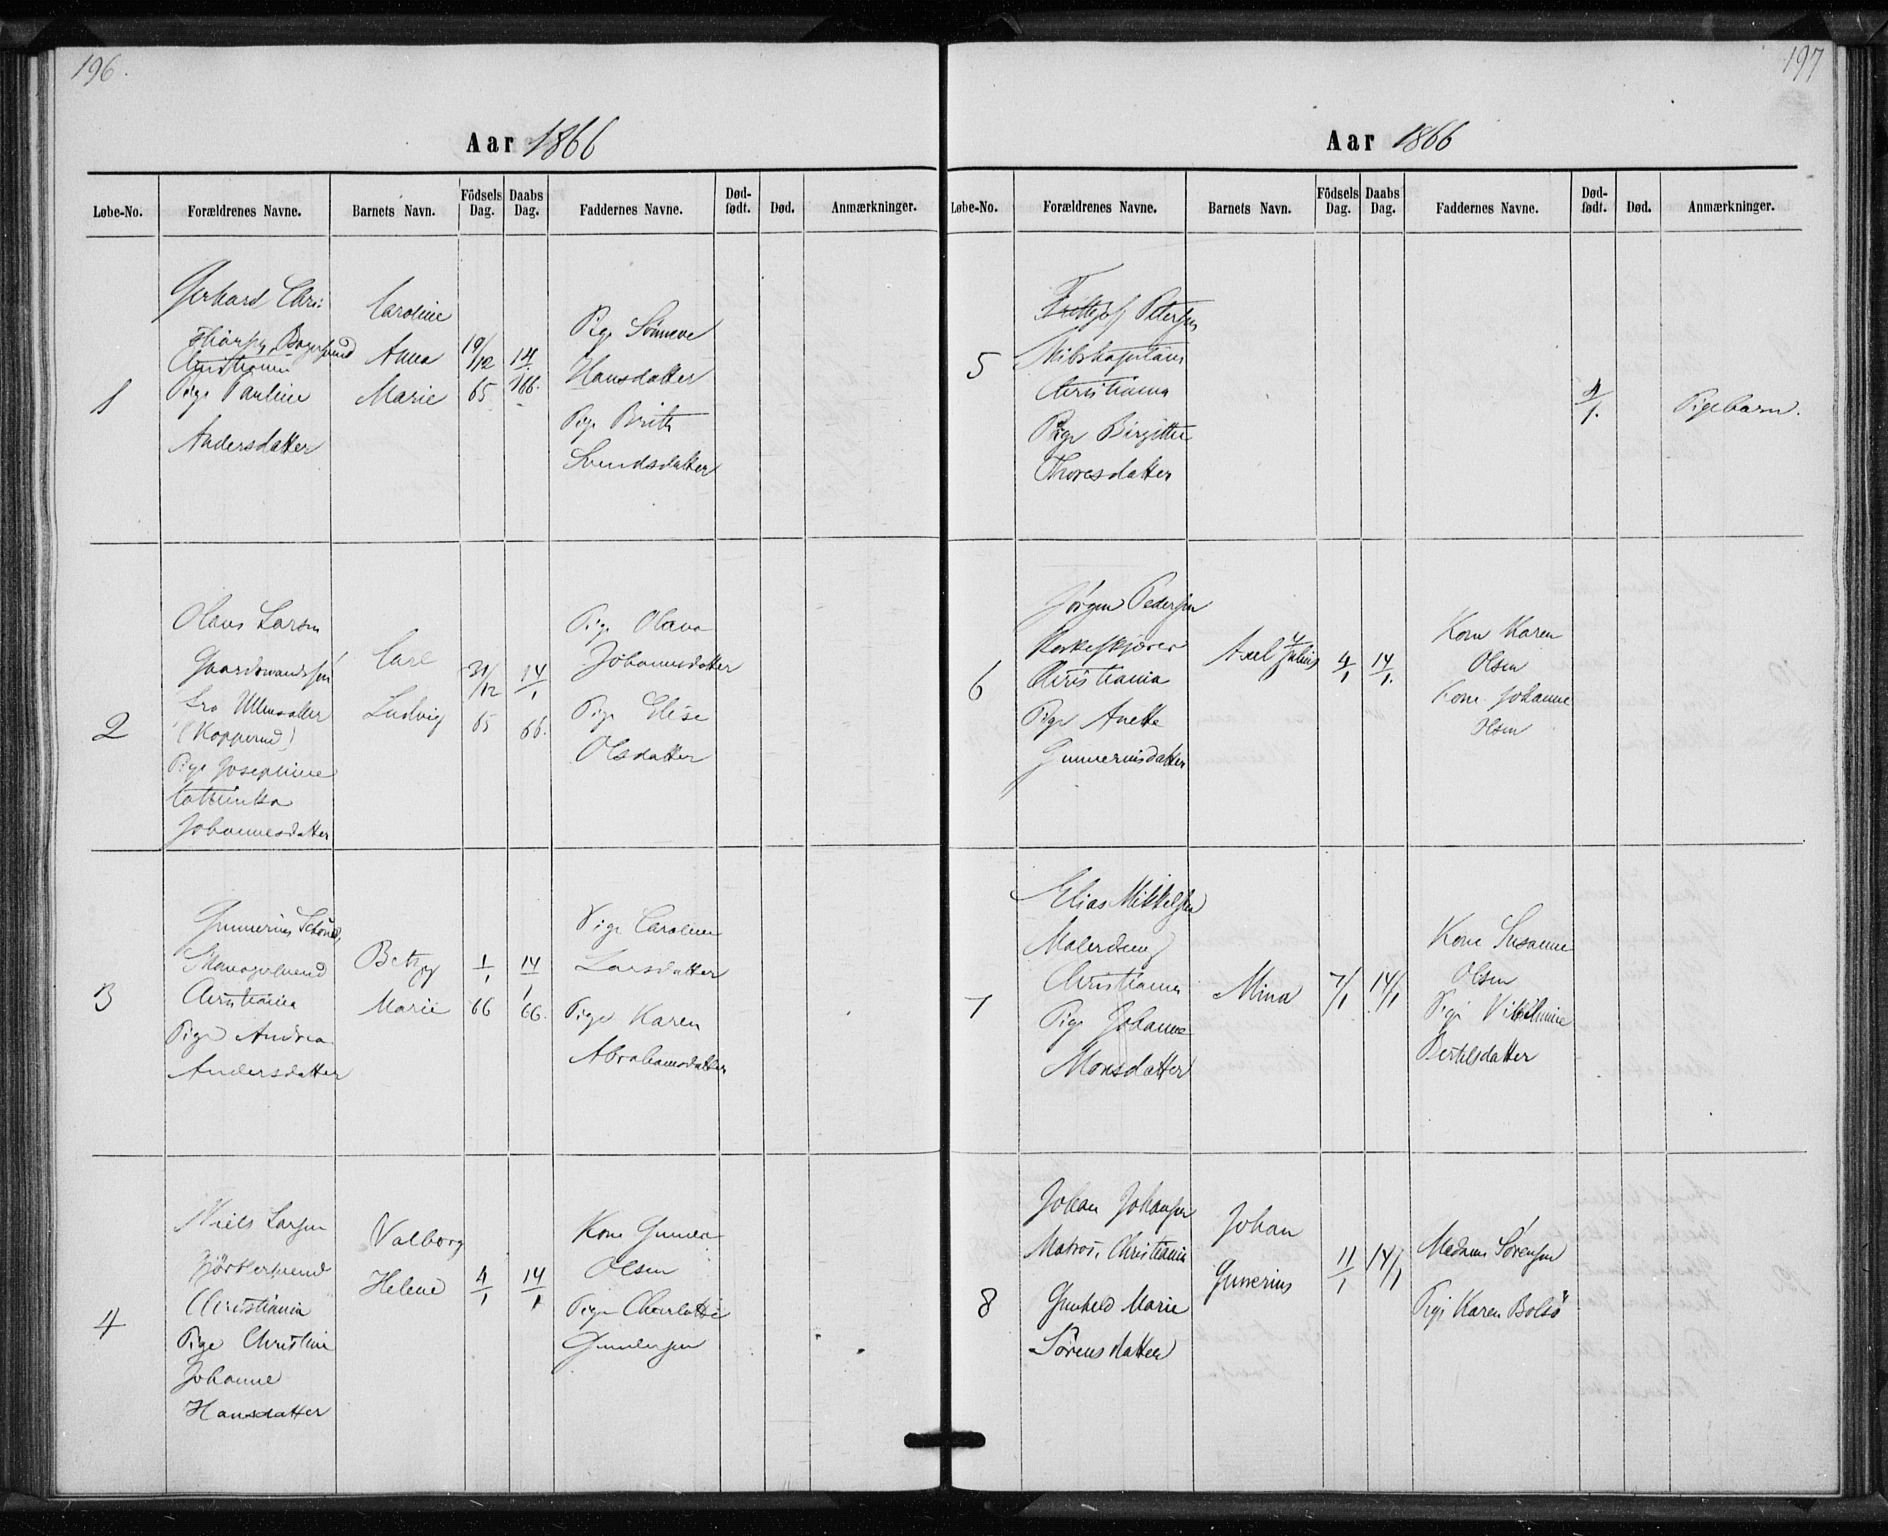 196.
Aar 1866
Løbe-No. Forældrenes Navne. Barnets Navn. Födsels Dag. Daabs Dag. Faddernes Navne. Død-födt. Død. Anmærkninger.
1
Gerhard Chri-
Christiania
Pige Pauline
Andersdatter
Caroline
Anna
Marie
19/12
65
14/1 66.
Pige Sönneva
Hansdatter
Pige Brith
Svendsdatter
2
Olaus Larsen
Gaardmandssön
fra Ullensaker
(Kopperud)
Pige Josephine
Cathinka
Johannesdatter
Carl
Ludvig
31/12
65
14/1
66.
Pige Olava
Johannesdatter
Pige Elise
Olsdatter
3
Gunnerius
Christiania
Pige Andrea
Andersdatter
Betzy
Marie
1/1
66
14/1
66.
Pige Caroline
Larsdatter
Pige Karen
Abrahamsdatter
4
Niels Larsen
Christiania
Pige Christine
Johanne
Hansdatter
Valborg
Helene
4/1
14/1
Kone Gunda
Olsen
Pige Charlotte
Gundersen
197
Aar 1866
Løbe-No. Forældrenes Navne. Barnets Navn. Födsels Dag. Daabs Dag. Faddernes Navne. Død-födt. Død. Anmærkninger.
5
Frithjof Petersen
Skibskaptein
Christiania
Pige Birgitte
Thoresdatter
4/1.
Pigebarn.
6
Jörgen Pedersen
Christiania
Pige Anette
Gunneriusdatter
Axel Julius
4/1
14/1.
Kone Karen
Olsen
Kone Johanne
Olsen
7
Elias Mikkelsen
Malersvend
Christiania
Pige Johanne
Monsdatter
Mina
7/1
14/1
Kone Susanne
Olsen
Pige Vilhelmine
Bertelsdatter
8
Johan Johansen
Matros, Christiania
Gunhild Marie
Sörensdatter
Johan
Gunerius
11/1
14/1
Madame Sörensen
Pige Karen Bolsö